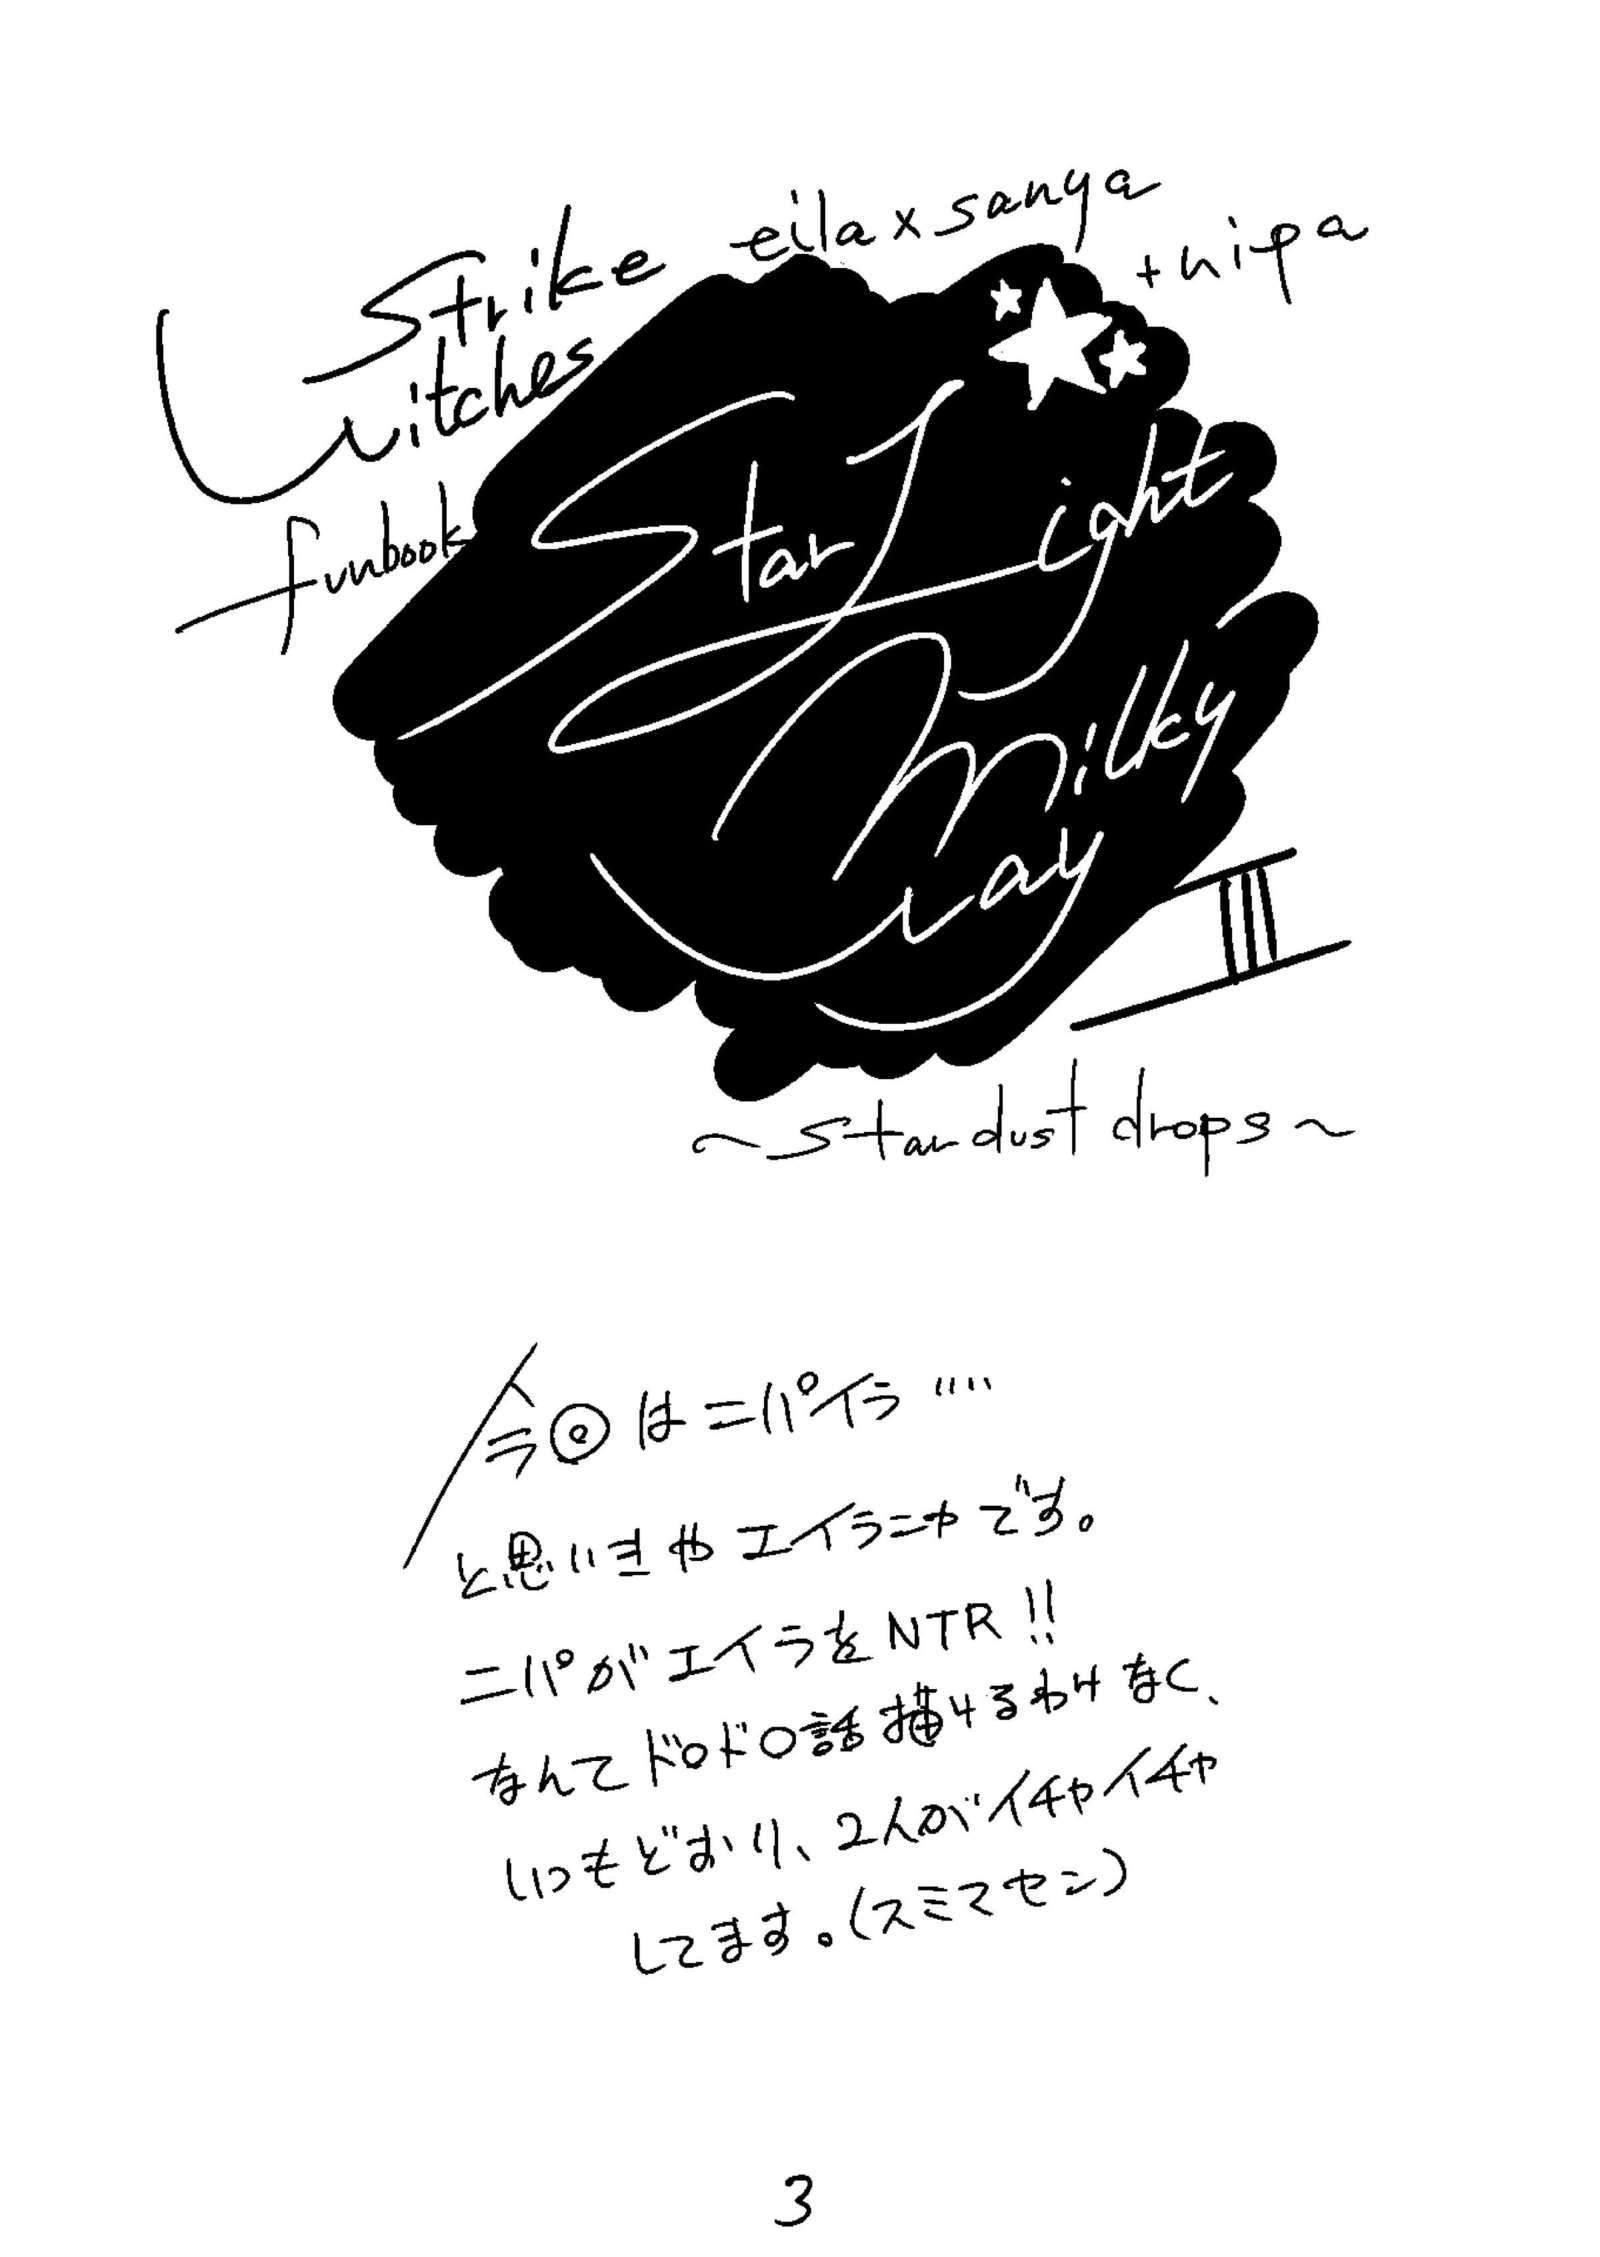 Strike
Witches
funbook
eila×sanya
+nipa
Star Light
Milky
Way
III
～stardust drops～
今回はニパイラ……
と思いきやエイラニャです。
ニパがエイラをNTR!!
なんてドロドロ話描けるわけなく、
いつもどおり、2人がイチャイチャ
してます。(スミマセン)
3